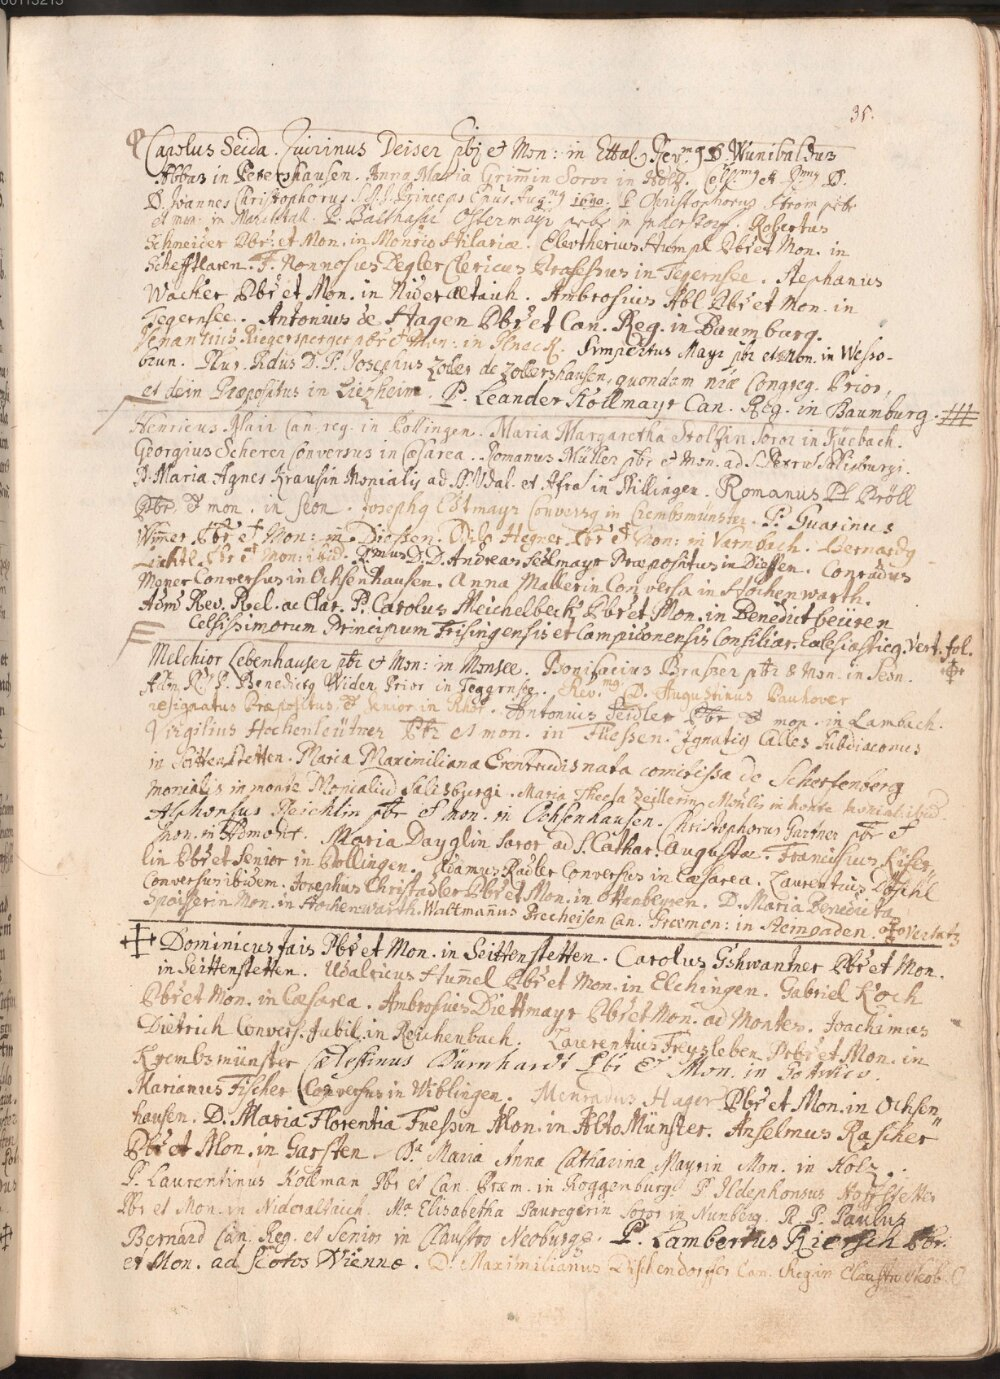 35.
Carolus Seida. Quirinus Deiser pbr et Mon: in Ettal. Rev.mg D. Wunibaldus
Abbas in Petershausen. Anna Maria Grimin Soror in Holz. et D.
D. Joannes Christophorus S.R.I. Princeps Epus Aug.ng 1690. P. Christophorus Strom pbr
et mon: in P. Balthasar Ostermayr pbr in Robertus
Schneider Pbr: et Mon. in Monrio Hilariae. Elertherius Stumpf Pbr et Mon. in
Schefftlaren. F. Nonnosus Degler Clericus Professus in Tegernsee. Stephanus
Wacker Pbr et Mon. in Nideraltaich. Ambrosius Abl Pbr et Mon. in
Tegernsee. Antonius de Hagen Pbr et Can. Reg. in Baumburg.
Venantius Riegersperger pbr et Mon: in Sympertus Mayr pbr et Mon. in Wesso-
brun. Plur. Rdus D. P. Josephus Zoller de Zollershausen, quondam nrae Congreg. Prior,
et dein Praepositus in Liezheim. P. Leander Kollmayr Can. Reg. in Baumburg.
Henricus Can. reg. in Pollingen. Maria Margaretha Stolzin Soror in Küebach.
Georgius Scherer Conversus in Caesarea. Romanus Müller pbr et Mon. ad S. Petru Salisburgi.
D. Maria Agnes Krausin Monialis ad S. Udal. et Afra in Dillingen. Romanus Pl Pröll
Pbr. & mon. in Seon. Joseph9 Estmayr Convers9 in Crembsmünster. P. Guarinus
Wimer Pbr et Mon: in Diessen. Odilo Hegner Pbr et Mon: in Varnbach. Bernard9
Liechtl Pbr et Mon: ibid. Rmus D. D. Andreas Sedlmayr Praepositus in Diessen. Conradus
Moner Conversus in Ochsenhausen. Anna Mallerin Conversa in Hochenwarth.
Adm. Rev. Rel. ac Clar. P. Carolus Meichelbeck Pbr et Mon. in Benedictbeüren
Celsissimorum Principum Frisingensis et Campidonensis Consiliar. Ecclesiastic9. Vert. fol.
Melchior Lebenhauser pbr et Mon: in Monsee. Bonifacius Brasser pbr & Mon. in Seon.
Adm. R. P. Benedict9 Widen Prior in Tegernsee. Rev.mg D. Augustinus Pauhover
resignatus Praepositus & Senior in Rhor. Antonius Seidler Pbr & mon. in Lambach.
Virgilius Hochenleütner Pbr et mon. in Flessen. Ignati9 Calles Subdiaconus
in Seittenstetten. Maria Maximiliana Erentrudis nata comitissa de Scherfenberg
monialis in monte Monialiu Salisburgi. Maria Theesa Zeillerin Molis in monte monialiu ibid
Alphonsus Reichlin pbr et mon. in Ochsenhausen. Christophorus Gartner pbr et
Mon. in Admont. Maria Dayglin Soror ad S. Cathar. Augustae. Franciscus Kiser
lin Pbr et Senior in Pollingen. Adamus Radler Conversus in Caesarea. Laurentius Döschl
Conversus ibidem. Josephus Christadler Pbr et Mon. in Ottenbeyren. D. Maria Benedicta
Spaiserin Mon. in Hochenwarth. Waltmanus Precheisen Can. Praemon: in Aempaden. Vertatz
Dominicus Fais Pbr et Mon. in Seittenstetten. Carolus Gshwantner Pbr et Mon.
in Seittenstetten. Udalricus Hummel Pbr et Mon. in Elchingen. Gabriel Koch
Pbr et Mon. in Caesarea. Ambrosius Diettmayr Pbr et Mon. ad Montes. Joachimus
Dietrich Convers. Jubil. in Reichenbach. Laurentius Freysleben Pbr et Mon. in
Krembsmünster Caelestinus Bürnhardt Pbr & Mon. in Gottwico.
Marianus Fischer Conversus in Wiblingen. Menradus Hager Pbr et Mon. in Ochsen
hausen. D. Maria Florentia Fuessin Mon. in AltoMünster. Anselmus Rascher
Pbr et Mon. in Garsten. Da Maria Anna Catharina Mayrin Mon. in Holz.
P. Laurentinus Kollman Pbr et Can. Praem. in Roggenburg. P. Ildephonsus Hoffstetter
Pbr et Mon. in Nideraltaich. Ma Elisabetha Pauregerin Soror in Nunberg. R. P. Paulus
Bernard Can. Reg. et Senior in Claustro Neoburgs. P. Lambertus Kiersch Pbr.
et Mon. ad Scotos Viennae. D. Maximilianus Can. Reg. in Claustro Neob.